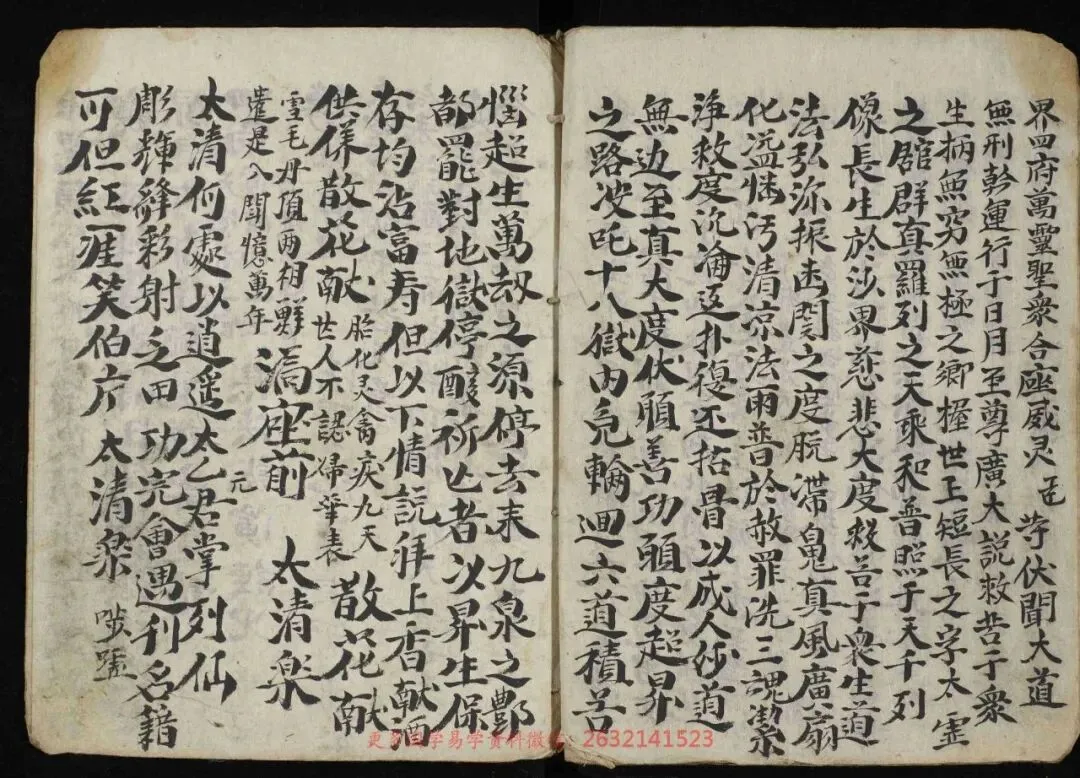 界四府萬靈聖衆合座威灵 臣 等伏聞大道
無刑幹運行于日月至尊廣大説救苦于衆
生柄無穷無極之鄉握世上短長之字太虛
之舘群真羅列之天乘和普照于天千列
像長生於沙界慈悲大度救苦于衆生道
法弘弥振幽関之度脱滯鬼真風廣扇
化溢惱污清凉法雨普於赦罪洗三魂潔
淨救度沉淪返朴復还括骨以成人妙道
無边至真大度伏願善功願度超昇
之路沙吒十八獄内免輪迴六道積苦
惱超生萬劫之源停去末九泉之酆
都罷對地獄停酸祈亡者以昇生保
存均沾富寿但以下情説拜上香献酒
供養散花献 胎化灵禽戾九天 散花献
世人不認歸華表
雪毛丹頂兩相鮮 滿座前 太清樂
遣是八聞憶萬年
太清何處以逍遥太乙元君掌列仙
彤輝絳彩射之田功完會遇刊名籍
可但紅涯笑伯庁 太清樂 啟
更多国学易学资料微信：2632141523